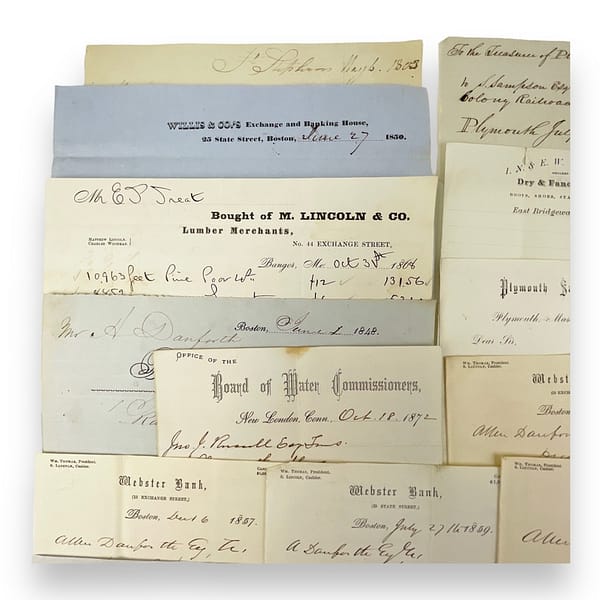 St Stephens May 6. 1803
WILLIS & CO.'S Exchange and Banking House,
25 State Street, Boston, June 27 1850.
Mr E P Treat
Bought of M. LINCOLN & CO.
Lumber Merchants,
MATTHEW LINCOLN.
No. 44 EXCHANGE STREET,
Bangor, Me. Oct 31st 1866
10,963 feet Pine Poor 12 131,56
Mr A Danforth Boston, June 1 1848.
OFFICE OF THE
Board of Water Commissioners,
New London, Conn., Oct. 18. 1872
Jno J. Russell Esq Trs.
WM. THOMAS, President.
S. LINCOLN, Cashier.
Webster Bank,
(23 EXCHANGE STREET,)
Boston, Dec 6 1857.
Allen Danforth Esq, Tr.
WM. THOMAS, President.
S. LINCOLN, Cashier.
Webster Bank,
(23 STATE STREET,)
Boston, July 27th 1859.
A Danforth Esq Tr,
To the Treasurer of Pl
to S. Sampson Esq
Colony Railroad
Plymouth July
I. N. & E. W.
Dry & Fanc
BOOTS, SHOES, STA
East Bridgew
Plymouth Sa
Plymouth, Mas
Dear Sir,
WM. THOMAS, President.
S. LINCOLN, Cashier.
Webst
Bosto
Allen Danfor
WM. THOMAS, President.
S. LINCOLN, Cashier.
Allen